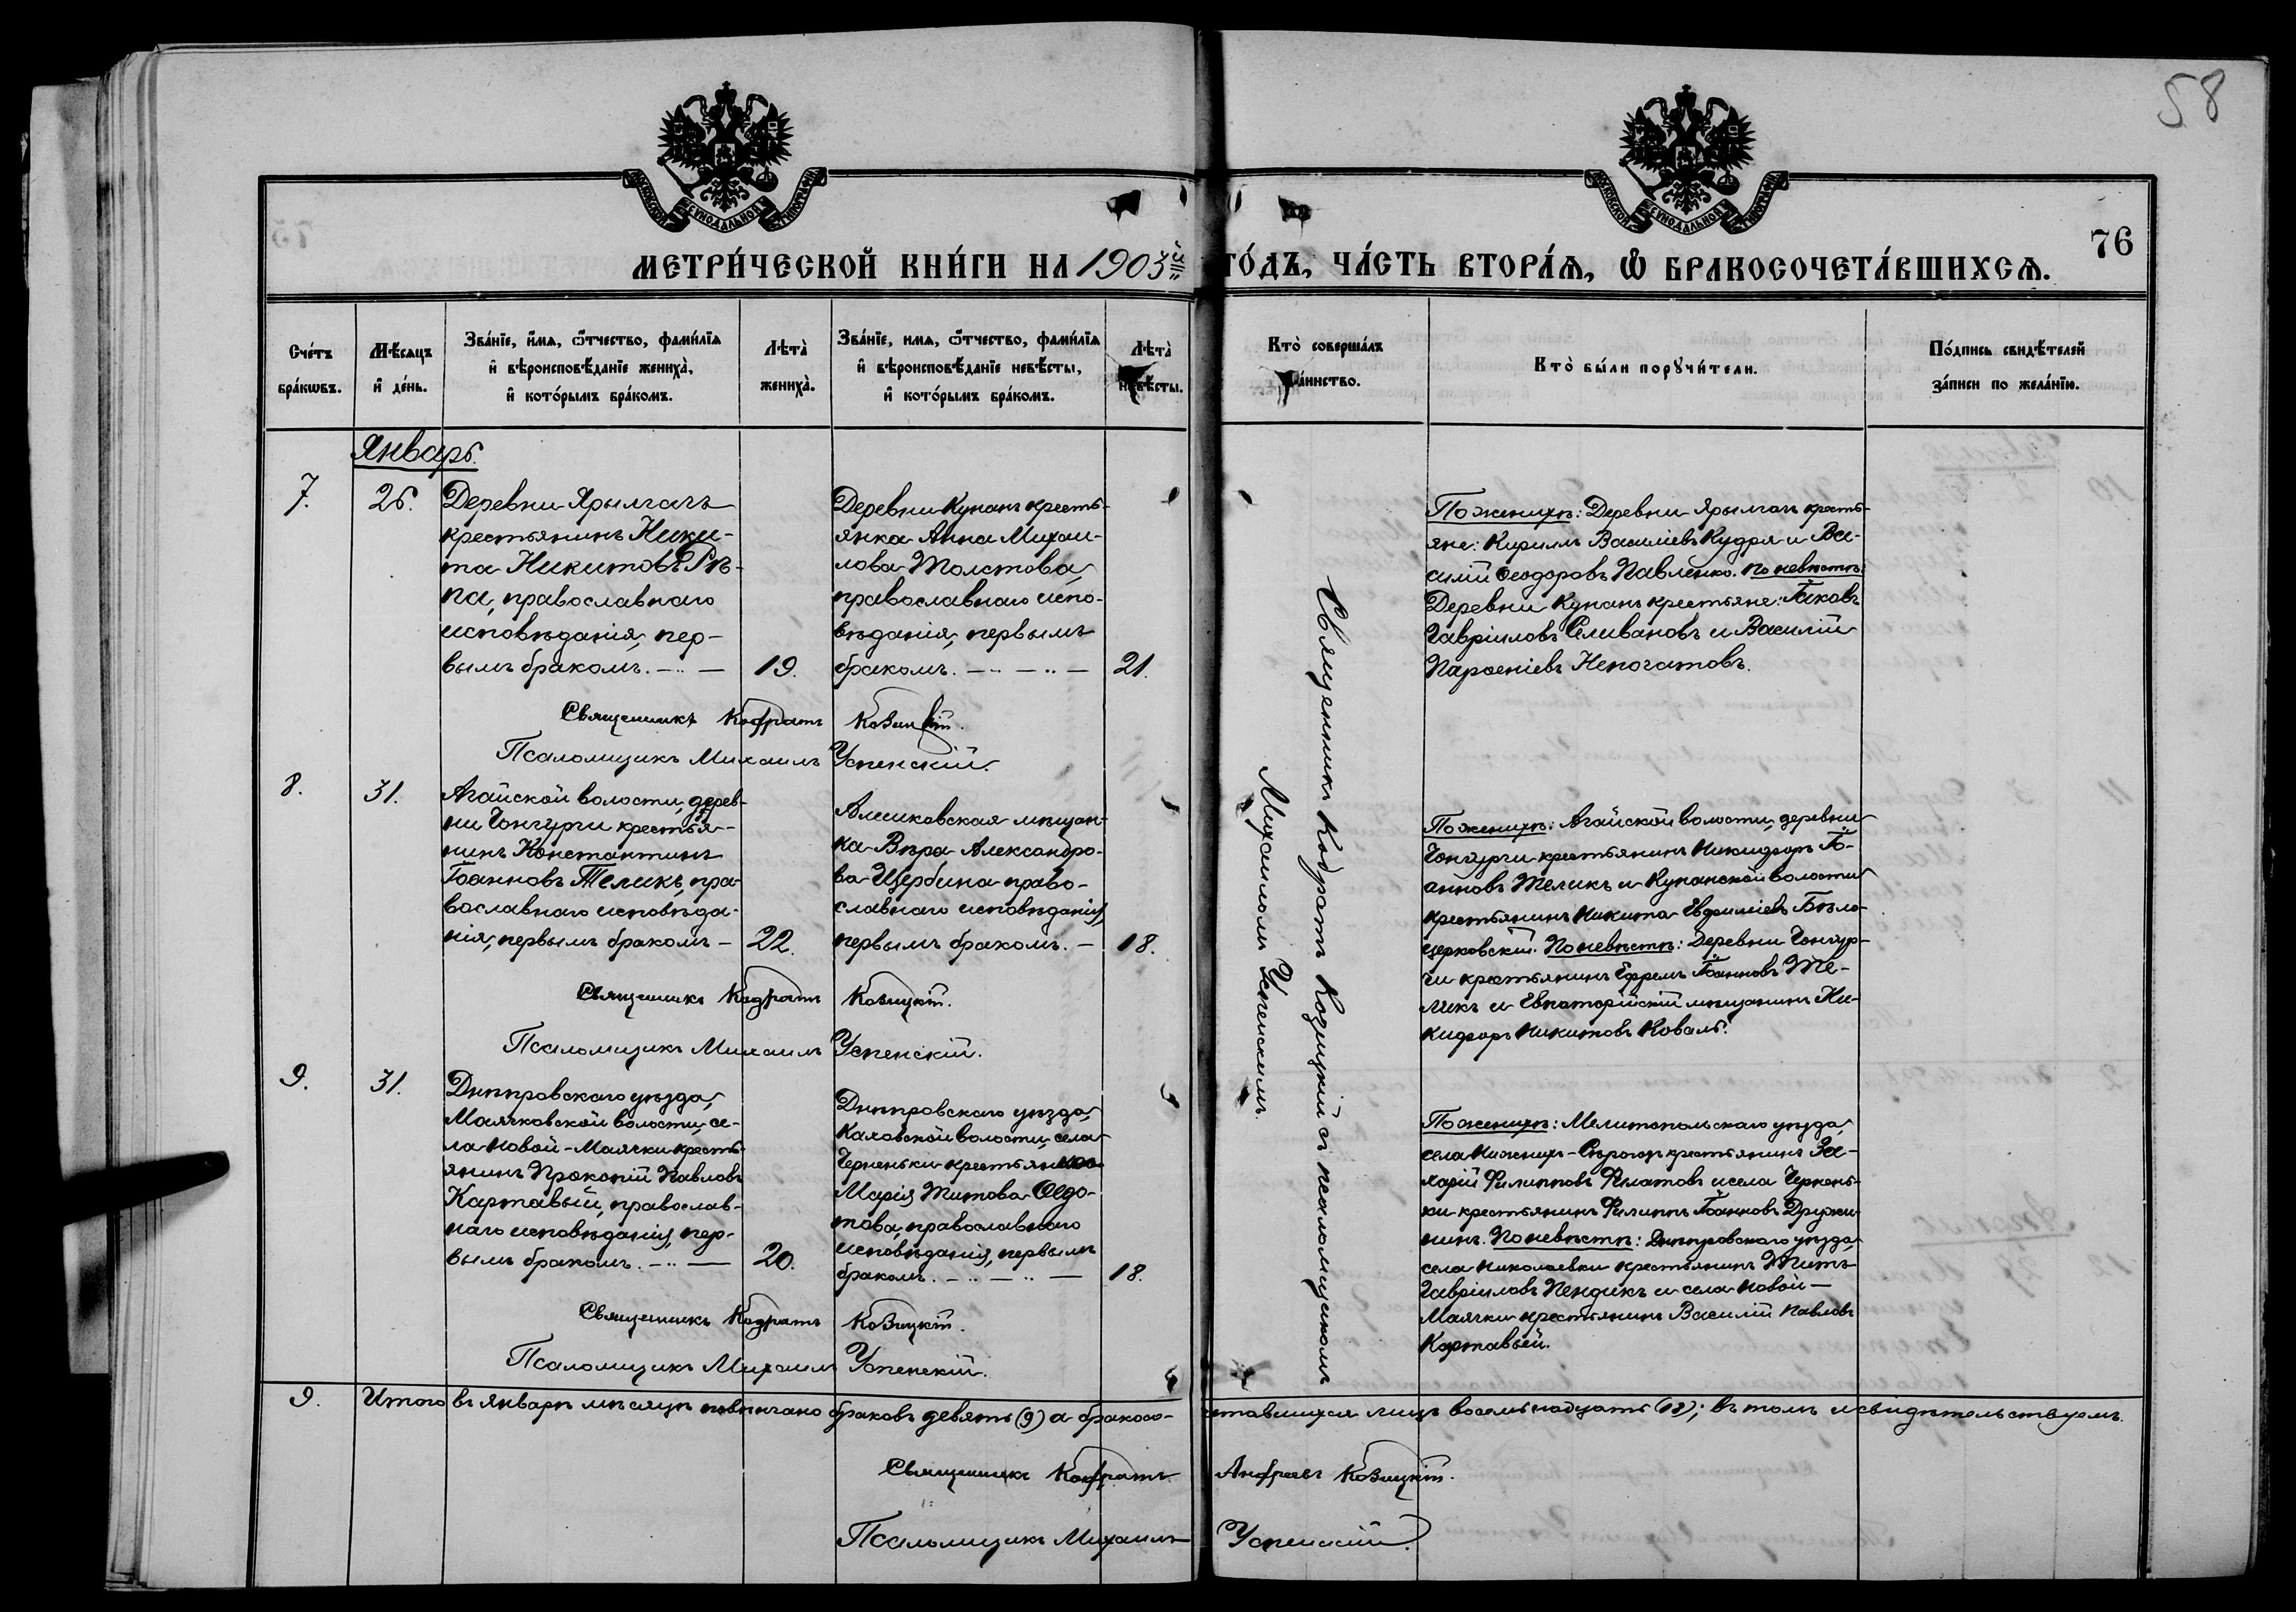 58
76
МОСКОВСКОЙ СѴНОДАЛЬНОЙ ТИПОГРАФІИ
МОСКОВСКОЙ СѴНОДАЛЬНОЙ ТИПОГРАФІИ
МЕТРИ́ЧЕСКОЙ КНИ́ГИ НА 1903й ГО́ДЪ, ЧА́СТЬ ВТОРА́Я, Ѽ БРАКОСОЧЕТА́ВШИХСЯ.
Сче́тъ бра́кѡвъ.
Мѣ́сяцъ и҆ де́нь.
Зва́нїе, и҆́мя, ѻ҆́тчество, фами́лїя и҆ вѣроисповѣ́данїе жениха̀, и҆ кото́рымъ бра́комъ.
Лѣта̀ жениха̀.
Зва́нїе, имя, ѻ҆́тчество, фами́лїя и҆ вѣроисповѣ́данїе невѣ́сты, и҆ кото́рымъ бра́комъ.
Лѣта̀ невѣ́сты.
Кто̀ соверша́лъ таинство.
Кто̀ бы́ли порꙋчи́тели.
По́дпись свидѣ́телей за́писи по жела́нїю.
Январь.
7.
26.
Деревни Ярылгачъ
крестьянинъ Ники-
та Никитовъ Рѣ-
па, православнаго
исповѣданія, пер-
вымъ бракомъ.
19.
Деревни Кунанъ кресть-
янка Анна Михаи-
лова Толстова,
православнаго испо-
вѣданія, первымъ
бракомъ.
21.
По женихѣ: Деревни Ярылгачъ кресть-
яне: Кириллъ Василіевъ Кудря и Ва-
силій Ѳеодоровъ Павленко. По невѣстѣ:
Деревни Кунанъ крестьяне: Іаковъ
Гавріиловъ Селивановъ и Василій
Парѳеніевъ Непочатовъ.
Священникъ Кодратъ Козицкій.
Псаломщикъ Михаилъ Успенскій.
8.
31.
Агайской волости, дерев-
ни Чонгурчи крестья-
нинъ Константинъ
Іоанновъ Теликъ, пра-
вославнаго исповѣда-
нія, первымъ бракомъ –
22.
Алешковская мѣщан-
ка Вѣра Александро-
ва Щербина право-
славнаго исповѣданія,
первымъ бракомъ. –
18.
По женихѣ: Агайской волости, деревни
Чонгурчи крестьянинъ Никифоръ Іо-
анновъ Теликъ и Кунанской волости
крестьянинъ Никита Евфиміевъ Бѣло-
церковскій. По невѣстѣ: Деревни Чонгур-
чи крестьянинъ Ефремъ Іоанновъ Те-
ликъ и Евпаторійскій мѣщанинъ Ни-
кифоръ Никитовъ Коваль.
Священникъ Кодратъ Козицкій.
Псаломщикъ Михаилъ Успенскій.
9.
31.
Днѣпровскаго уѣзда,
Маячковской волости, се-
ла Новой-Маячки кресть-
янинъ Прокопій Павловъ
Картавый, православ-
наго исповѣданія, пер-
вымъ бракомъ.
20.
Днѣпровскаго уѣзда,
Каховской волости, села
Черненьки крестьянка
Марія Титова Ѳедо-
това, православнаго
исповѣданія, первымъ
бракомъ.
18.
По женихѣ: Мелитопольскаго уѣзда,
села Нижнихъ-Сѣрогозъ крестьянинъ За-
харій Филипповъ Филатовъ и села Чернень-
ки крестьянинъ Филиппъ Іоанновъ Дружи-
нинъ. По невѣстѣ: Днѣпровскаго уѣзда,
села Николаевки крестьянинъ Титъ
Гавріиловъ Пендикъ и села Новой-
Маячки крестьянинъ Василій Павловъ
Картавый.
Священникъ Кодратъ Козицкій.
Псаломщикъ Михаилъ Успенскій.
Священникъ Кодратъ Козицкій съ псаломщикомъ
Михаиломъ Успенскимъ.
9.
Итого въ январѣ мѣсяцѣ повѣнчано браковъ девять (9) а бракосо-
четавшихся лицъ восемьнадцать (18); въ томъ и свидѣтельствуемъ.
Священникъ Кодратъ Андреевъ Козицкій.
Псаломщикъ Михаилъ Успенскій.